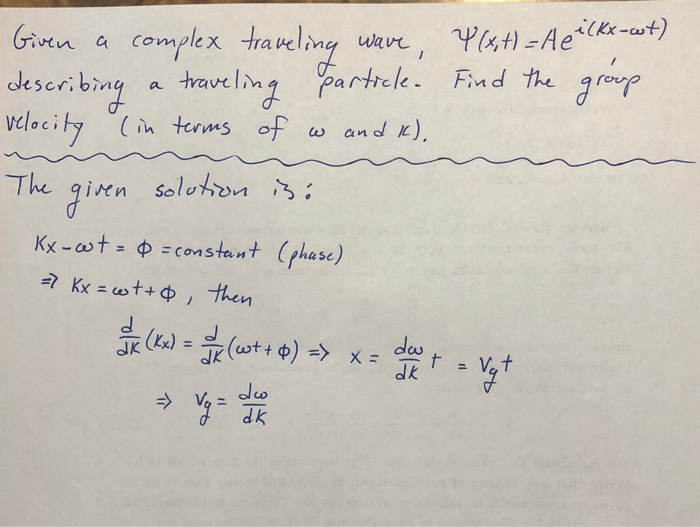 Given a complex traveling wave, Ψ(x,t) = Ae^{i(kx-ωt)}
describing a traveling particle. Find the group
velocity (in terms of ω and k).
The given solution is:
kx - ωt = Φ = constant (phase)
⇒ kx = ωt + Φ, then
d/dk (kx) = d/dk (ωt + Φ) ⇒ x = dω/dk t = v_g t
⇒ v_g = dω/dk